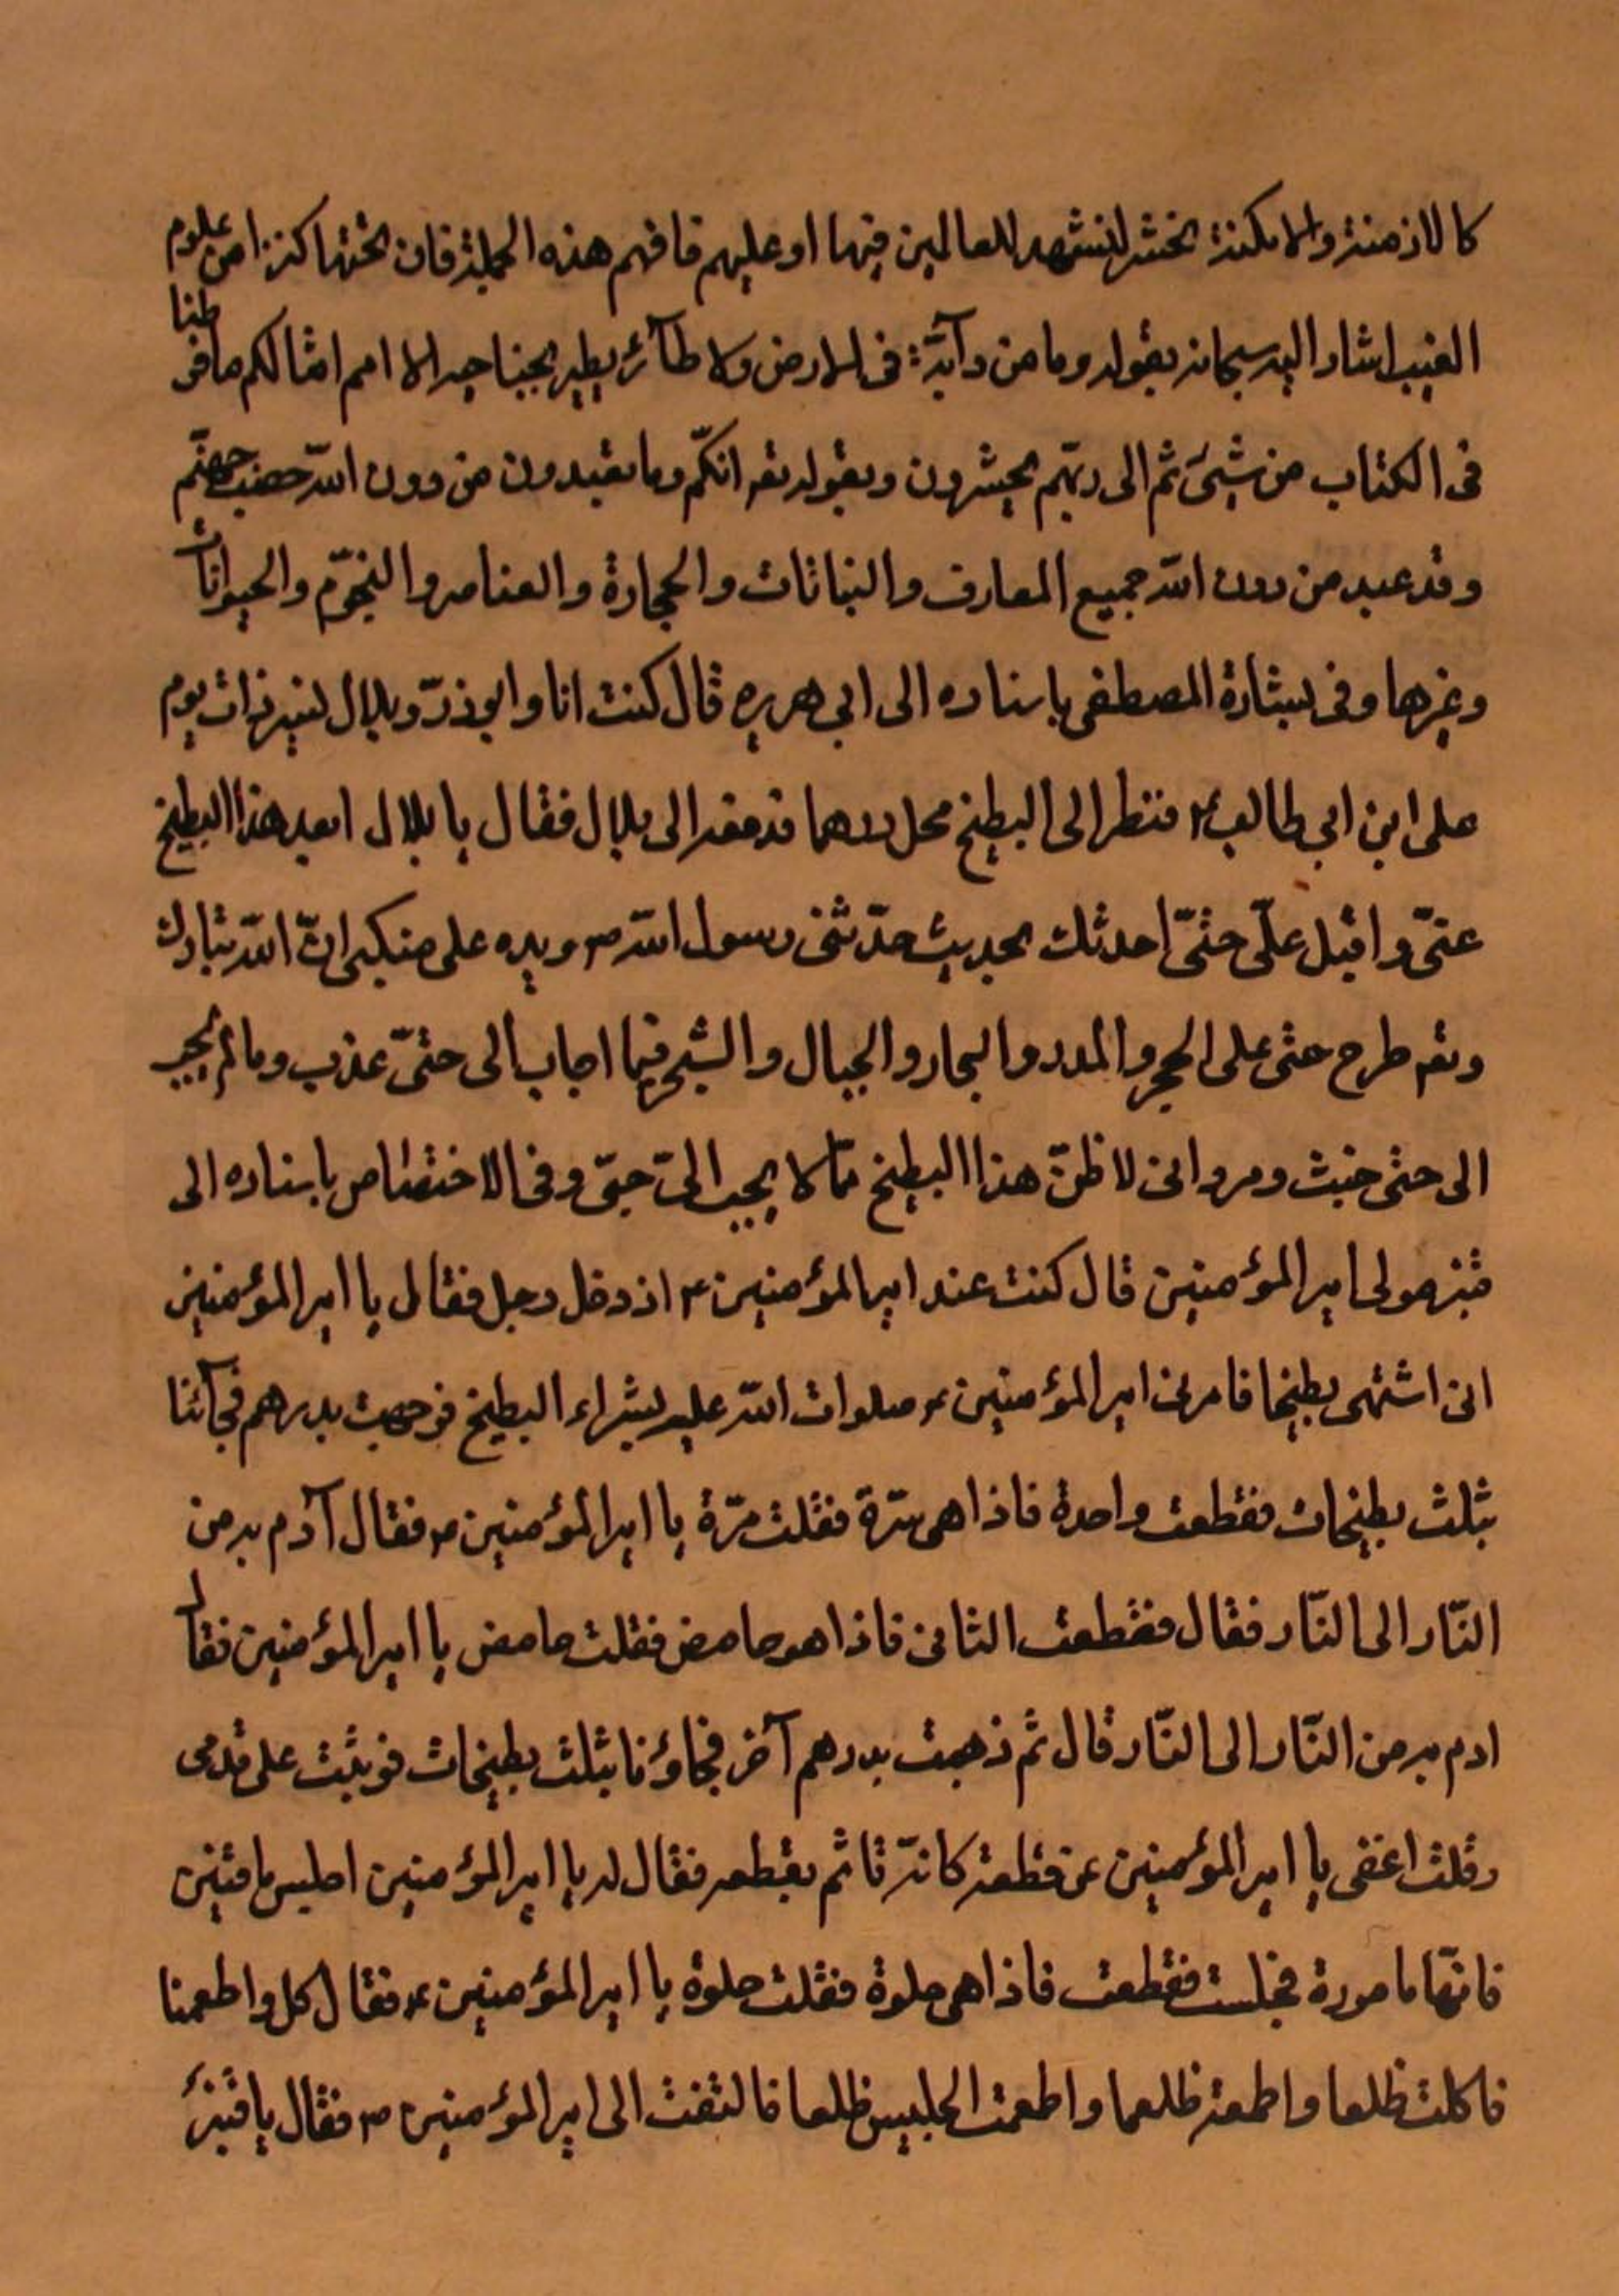 كالازمنة والامكنة تحشر لتشهد للعالمين فيها او عليهم فافهم هذه الجملة فان تحتها كنزا من علوم
الغيب اشار اليه سبحانه بقوله وما من دآبّة فى الارض ولا طآئر يطير بجناحيه الا امم امثالكم ما فرطنا
فى الكتاب من شيئ ثم الى ربّهم يحشرون وبقوله تعه انكّم وما تعبدون من دون اللّه حصب جهنّم
وقد عبد من دون اللّه جميع المعارف والنباتات والحجارة والعناصر والنجوّم والحيوانات
وغيرها وفى بشارة المصطفى باسناده الى ابى هريره قال كنت انا وابوذرّ وبلال نسير ذات يوم
على ابن ابي طالب ع فنظر الى البطيخ محل درهما فدفعه الى بلال فقال يا بلال ابعد هذا البطيخ
عنّى واقبل علّى حتّى احدثك بحديث حدّثنى رسول اللّه ص ويده على منكبى انّ اللّه تبارك
وتعه طرح حبى على الحجر والمدر والبحار والجبال والشجر فما اجاب الى حبّى عذب وما لم يجب
الى حبى خبث ومر وانى لا ظنّ هذا البطيخ ممّا لا يجيب الىّ حبّى وفى الاختصاص باسناده الى
قنبر مولى امير المؤمنين قال كنت عند امير المؤمنين ع اذ دخل رجل فقال يا امير المؤمنين
انى اشتهى بطيخا فامرنى امير المؤمنين ع صلوات اللّه عليه بشراء البطيخ فوجهت بدرهم فجآئنا
بثلث بطيخات فقطعت واحدة فاذا هى مرّة فقلت مرّة يا امير المؤمنين ع فقال آدم به من
النّار الى النّار فقال فقطعت الثانى فاذا هو حامض فقلت حامض يا امير المؤمنين فقال
ادم به من النّار الى النّار قال ثم ذهبت بدرهم آخر فجاؤنا بثلث بطيخات فوثبت على قدمى
وقلت اعفى يا امير المؤمنين عن قطعه كانّه تاثم بقطعه فقال له يا امير المؤمنين اجلس يا قنبر
فانّها مامورة فجلست فقطعت فاذا هى حلوة فقلت حلوة يا امير المؤمنين ع فقال كل واطعمنا
فاكلت ظلعا واطمعته ظلعما واطعمت الجليس ظلعا فالتفت الى امير المؤمنين ص فقال يا قنبر